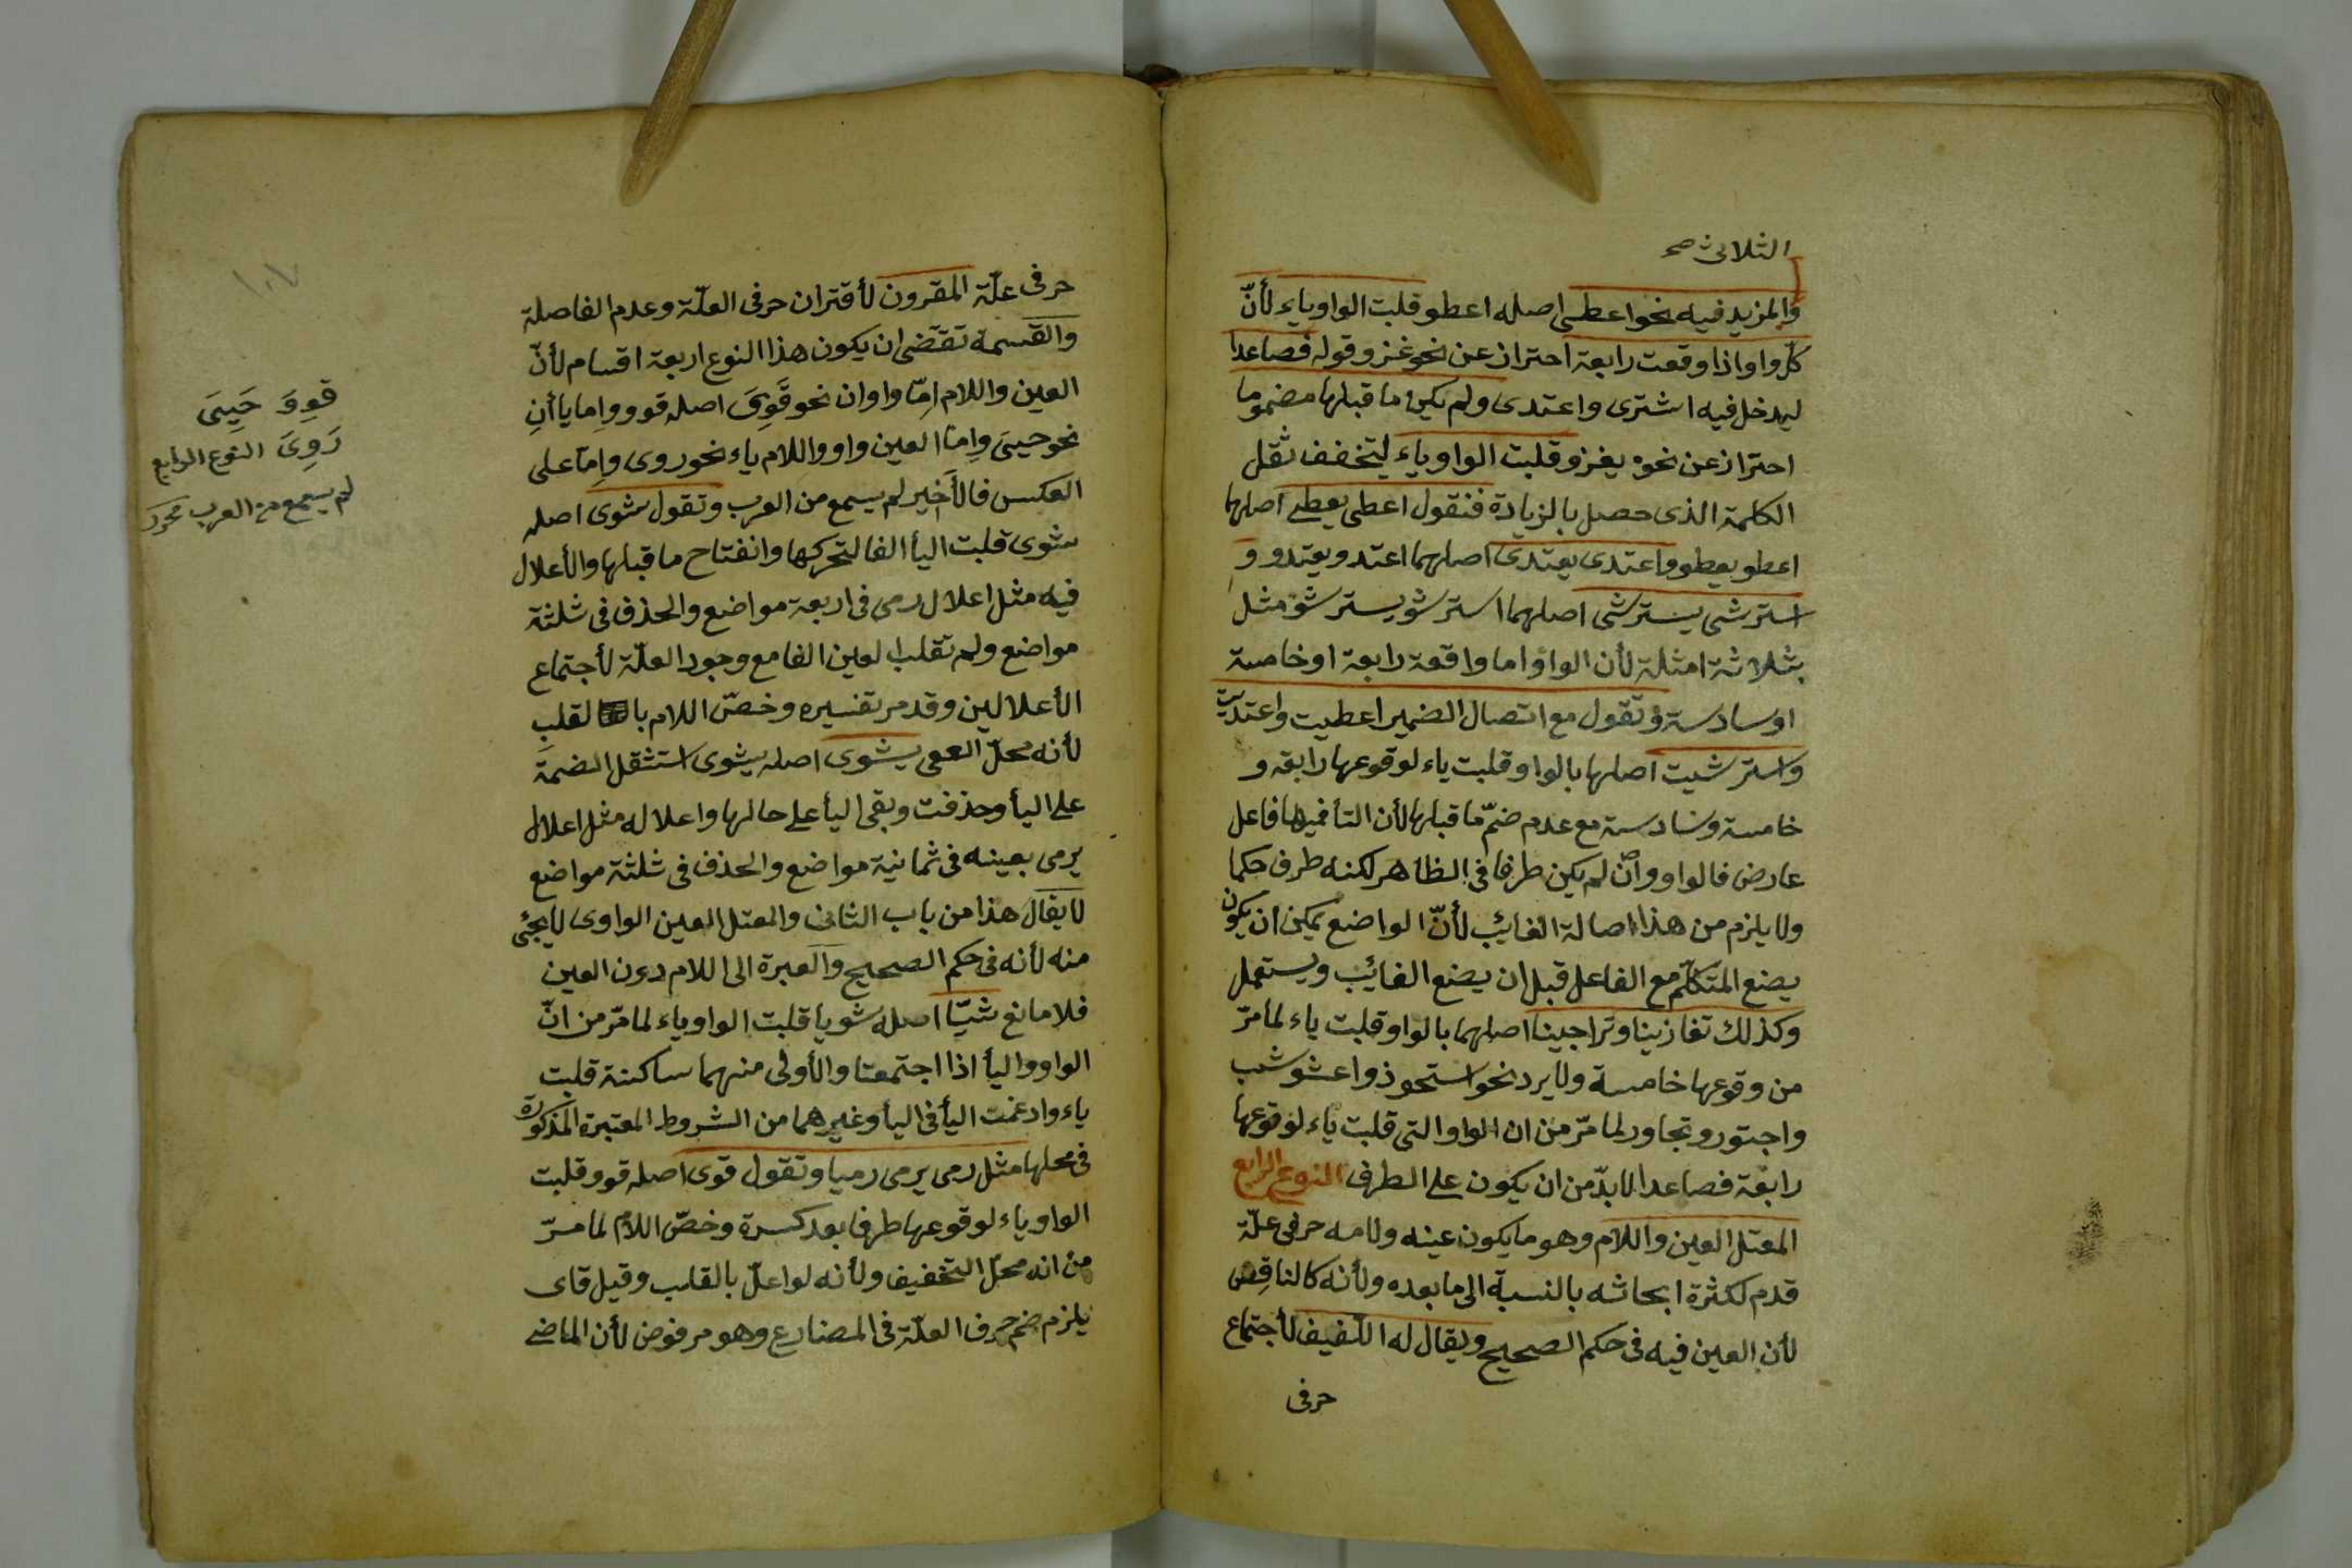 الثلاثى صح
والمزيد فيه نحو اعطى اصله اعطو قلبت الواو ياء لأنّ
كلّ واو اذا وقعت رابعة احتراز عن نحو غزو وقوله فصاعدا
ليدخل فيه اشترى واعتدى ولم يكن ما قبلها مضموما
احتراز عن نحو يغزو قلبت الواو ياء ليتخفف ثقل
الكلمة الذى حصل بالزيادة فنقول اعطى يعطى اصلها
اعطو يعطو واعتدى يعتدى اصلهما اعتدو يعتدو و
استرشى يسترشى اصلهما استرشو يسترشو مثل
بثلاثة امثلة لأن الواو اما واقعة رابعة او خامسة
او سادسة وتقول مع اتصال الضمير اعطيت واعتديت
واسترشيت اصلها بالواو قلبت ياء لوقوعها رابعة و
خامسة وسادسة مع عدم ضمّ ما قبلها لأن التأ فيها فاعل
عارض فالواو وان لم يكن طرفا فى الظاهر لكنه طرف حكما
ولا يلزم من هذا اصالة الغائب لأنّ الواضع يمكن ان يكون
يضع المتكلّم مع الفاعل قبل ان يضع الغائب ويستعمل
وكذلك تغازينا وتراجينا اصلهما بالواو قلبت ياء لما مرّ
من وقوعها خامسة ولا يرد نحو استحوذ واعشوشب
واجتور وتجاور لما مرّ من ان الواو التى قلبت ياء لوقوعها
رابعة فصاعدا لا بدّ من ان يكون على الطرف النوع الرابع
المعتل العين واللام وهو ما يكون عينه ولامه حرفى علّة
قدم لكثرة ابحاثه بالنسبة الى ما بعده ولأنه كالناقص
لأن العين فيه فى حكم الصحيح ويقال له اللّفيف لأجتماع
حرفى
حرفى علّة المقرون لأقتران حرفى العلّة وعدم الفاصلة
والقسمة تقتضى ان يكون هذا النوع اربعة اقسام لأنّ
العين واللام امّا واوان نحو قَوِىَ اصله قوو واما ياأنِ
نحو حيىَ وامّا العين واو واللام ياء نحو روى وامّا على
العكس فالأخير لم يسمع من العرب وتقول شوى اصله
شوى قلبت اليأ الفا لتحركها وانفتاح ما قبلها والأعلال
فيه مثل اعلال رمى فى اربعة مواضع والحذف فى ثلثة
مواضع ولم تقلب العين الفا مع وجود العلّة لأجتماع
الأعلالين وقد مر تفسيره وخصّ اللام بالقلب
لأنه محلّ يشوى اصله يشوى استثقل الضمة
على اليأ وحذفت وبقى اليأ على حالها واعلاله مثل اعلال
يرمى بعينه فى ثمانية مواضع والحذف فى ثلثة مواضع
لا يقال هذا من باب الثانى والمعتل العين الواوى لا يجئ
منه لأنه فى حكم الصحيح والعبرة الى اللام دون العين
فلا مانع شيّا اصله شويا قلبت الواو ياء لما مرّ من انّ
الواو واليأ اذا اجتمعتا والأولى منهما ساكنة قلبت
ياء وادغمت اليأ فى اليأ وغيرهما من الشروط المعتبرة المذكورة
فى محلها مثل رمى يرمى رميا وتقول قوى اصله قوو قلبت
الواو ياء لوقوعها طرفا بعد كسرة وخصّ اللام لما مرّ
من انه محلّ التخفيف ولأنه لو اعلّ بالقلب وقيل قاى
يلزم ضم حرف العلّة فى المضارع وهو مرفوض لأن الماضى
١٠٧
قوِوَ حَيِىَ
رَوِىَ النوع الرابع
لم يسمع من العرب محرر